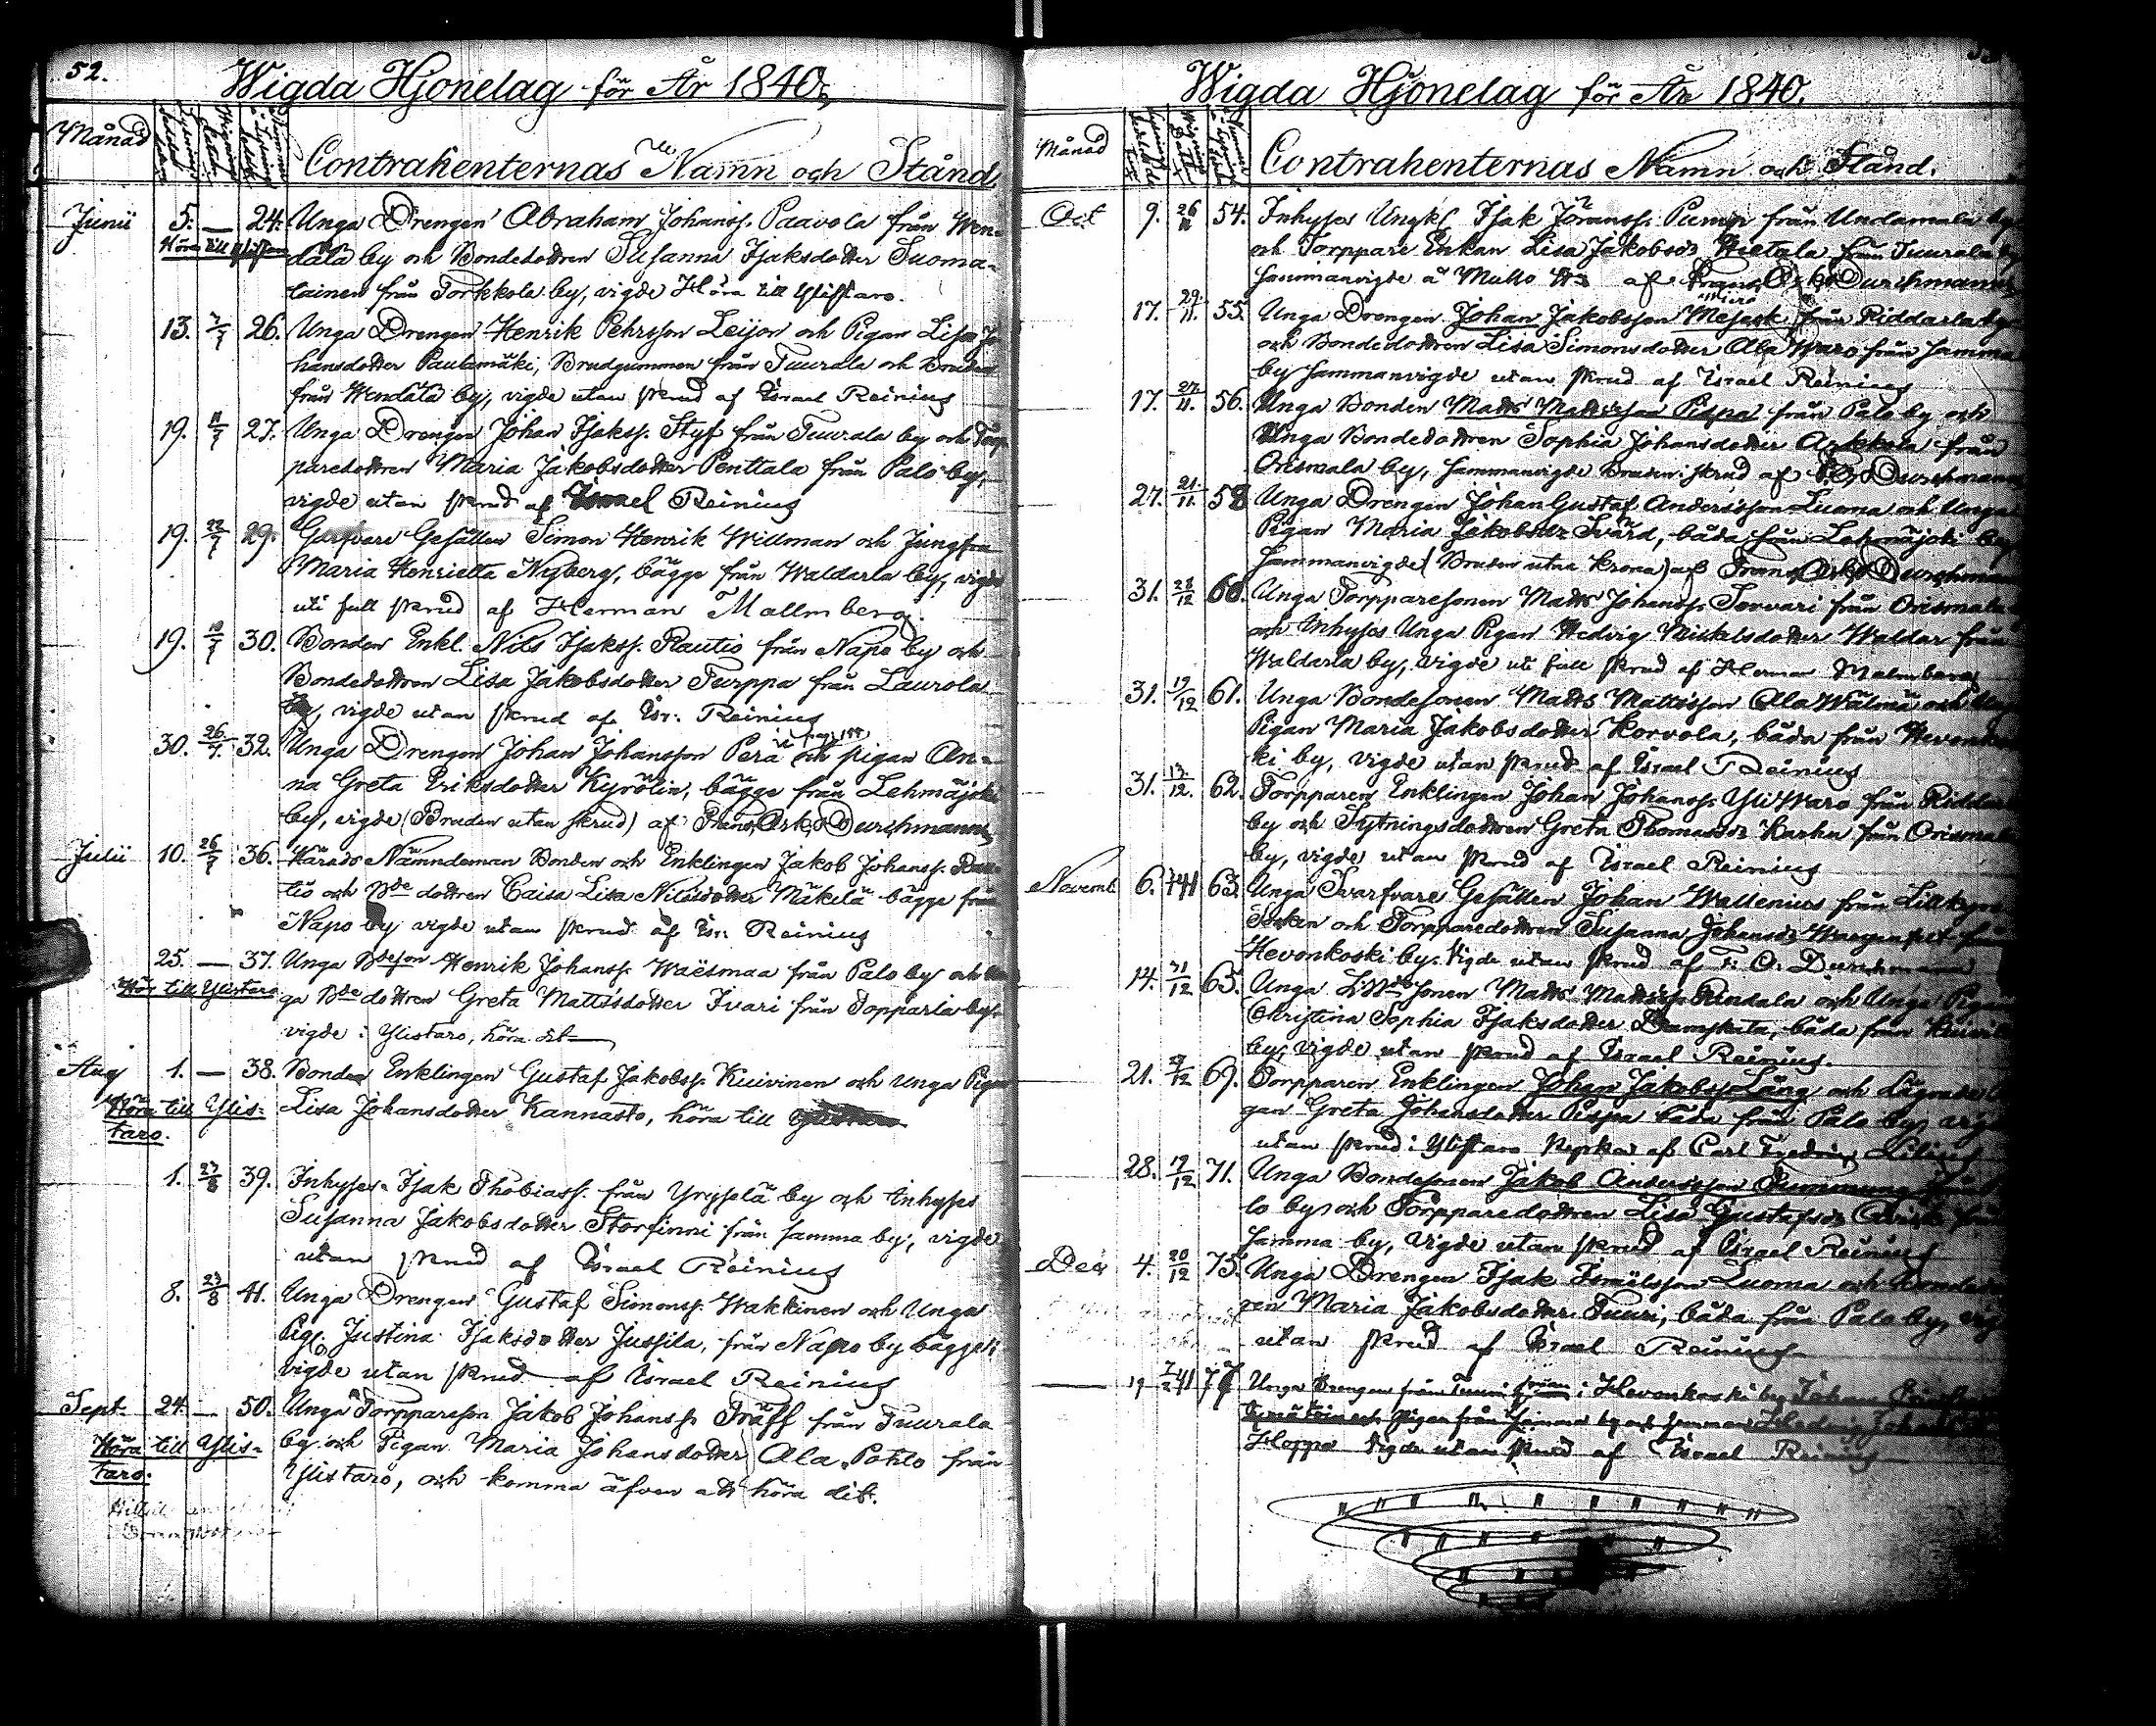 52.
Wigda Hjonelag för År 1840,
Månad
Contrahenternas Namn och Stånd,
Junii 5. — 24. Unga Drengen Abraham Johanss. Paavola från Wen-
Höra till Ylistaro
däla by och Bondedottren Susanna Isaksdotter Suoma-
lainen från Torkkola by, vigde Höra till Ylistaro.
13. 26. Unga Drengen Henrik Pehrsson Leijon och Pigan Lisa Jo
hansdotter Paulamäki, Brudgummen från Tuurala och Bruden
från Wendälä by, vigde utan skrud af Israel Reinius
19. 27. Unga Drengen Johan Isakss. Styf från Tuurala by och Torp
paredottren Maria Jakobsdotter Penttala från Palo by,
vigde utan skrud af Israel Reinius
19. 22/7 29. Garfvare Gesällen Simon Henrik Willman och Jungfru
Maria Henrietta Nyberg, bägge från Waldarla by, vigde
uti full skrud af Herman Mallmberg.
19. 30. Bonden Enkl. Nils Isakss. Rautio från Napo by och
Bondedottren Lisa Jakobsdotter Turppa från Laurola
by, vigde utan skrud af Isr. Reinius
30. 26/7. 32. Unga Drengen Johan Johansson Perä och pigan An-
na Greta Eriksdotter Kyrölin, bägge från Lehmäjoki
by, vigde (Bruden utan skrud) af Frans Osk. Durchmann
Julii 10. 26/7 36. Härads Nämndeman Bonden och Enklingen Jakob Johanss. Rau-
tio och Bde dottren Caisa Lisa Nilsdotter Mäkelä bägge från
Napo by vigde utan skrud af Isr. Reinius
25. — 37. Unga Bdeson Henrik Johanss. Waësmaa från Palo by och Un
Hör till Ylistaro
ga Bde dottren Greta Mattsdotter Ivari från Topparla by,
vigde i Ylistaro, höra dit
Aug 1. — 38. Bonden Enklingen Gustaf Jakobss. Kuivinen och Unga Pigan
Höra till Ylis-
taro.
Lisa Johansdotter Kannasto, höra till
1. 23/8 39. Inhyses Isak Thobiass. från Yrysselä by och Inhyses
Susanna Jakobsdotter Storfinni från samma by, vigde
utan skrud af Israel Reinius
8. 23/8 41. Unga Drengen Gustaf Simonss. Wakkinen och Unga
Pig. Justina Isaksdotter Jussila, från Napo by bägge,
vigde utan skrud af Israel Reinius
Sept. 24. — 50. Unga Torppareson Jakob Johanss. Träff från Tuurala
Höra till Ylis-
taro.
by och Pigan Maria Johansdotter Ala Pohto från
Ylistaro, och komma äfven att höra dit.
Wigda Hjonelag för År 1840.
Månad
Contrahenternas Namn och Stånd.
Oct 9. 54. Inhyses Ungkl. Isak Göranss. Pump från Undamala by
och Torppare Enkan Lisa Jakobsdr Hietala från Tuurala by
sammanvigde af Frans Osk. Durchmann
17. 29/11. 55. Unga Drengen Johan Jakobsson från Riddarla by
och Bondedottren Lisa Simonsdotter Ala Waro från samma
by sammanvigde utan skrud af Israel Reinius
17. 56. Unga Bonden Matts Mattsson Pispa från Palo by och
Unga Bondedottren Sophia Johansdotter från
Orismala by, sammanvigde Bruden i skrud af F. O. Durchmann
27. 21/11. 58 Unga Drengen Johan Gustaf Andersson Luoma och Unga
Pigan Maria Jakobsdr Svärd, båda från Lehmäjoki by
sammanvigde (Bruden utan krona) af Frans Osk. Durchmann
31. 60. Unga Torpparesonen Matts Johanss. Torvari från Orismala
och Inhyses Unga Pigan Hedvig Mickelsdotter Waldar från
Waldarla by, vigde uti full skrud af Herman Malmberg
31. 19/12 61. Unga Bondesonen Matts Mattsson Ala Wälimä och Unga
Pigan Maria Jakobsdotter Korvola, båda från Hevonkos
ki by, vigde utan skrud af Israel Reinius
31. 13/12. 62. Torpparen Enklingen Johan Johanss. Yli Waro från Riddarla
by och Sytningsdottren Greta Thomasdr Karhu från Orismala
by, vigde utan skrud af Israel Reinius
Novemb. 6. 63. Unga Svarfvare Gesällen Johan Wellenius från Lillkyro
Socken och Torpparedottren Susanna Johansdr från
Hevonkoski by. Vigde utan skrud af F. O. Durchmann
14. 65. Unga sonen Matts Mattss. Rindala och Unga Pigan
Christina Sophia Isaksdotter båda från
by, vigde utan skrud af Israel Reinius.
21. 69. Torpparen Enklingen Johan Jakobss. Lång och
gan Greta Johansdotter Pispa båda från Palo by, vigde
utan skrud i Ylistaro Kyrka af Carl Fredrik Lilius
28. 19/12 71. Unga Bondesonen Jakob Andersson
lo by och Torpparedottren Lisa Gustafsdr från
samma by, vigde utan skrud af Israel Reinius
Dec 4. 20/12 75. Unga Drengen Isak Ismälsson Luoma och
ren Maria Jakobsdotter Tuuri, båda från Palo by, vig
utan skrud af Israel Reinius
19 77 Unga Drengen från i Hevonkoski by Johan
pigan från samma by och Hedvig Johans
Hoppo Vigde utan skrud af Israel Reinius